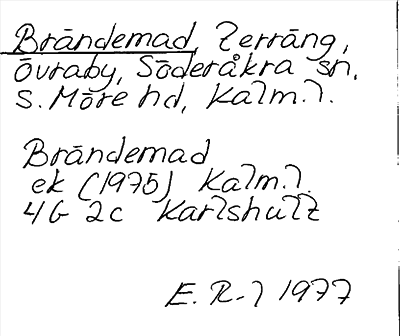 Brändemad, Terräng,
Övraby, Söderåkra sn,
S. Möre hd, Kalm. l.
Brändemad
ek (1975) Kalm. l.
4G 2c Karlshult
E. R-l 1977